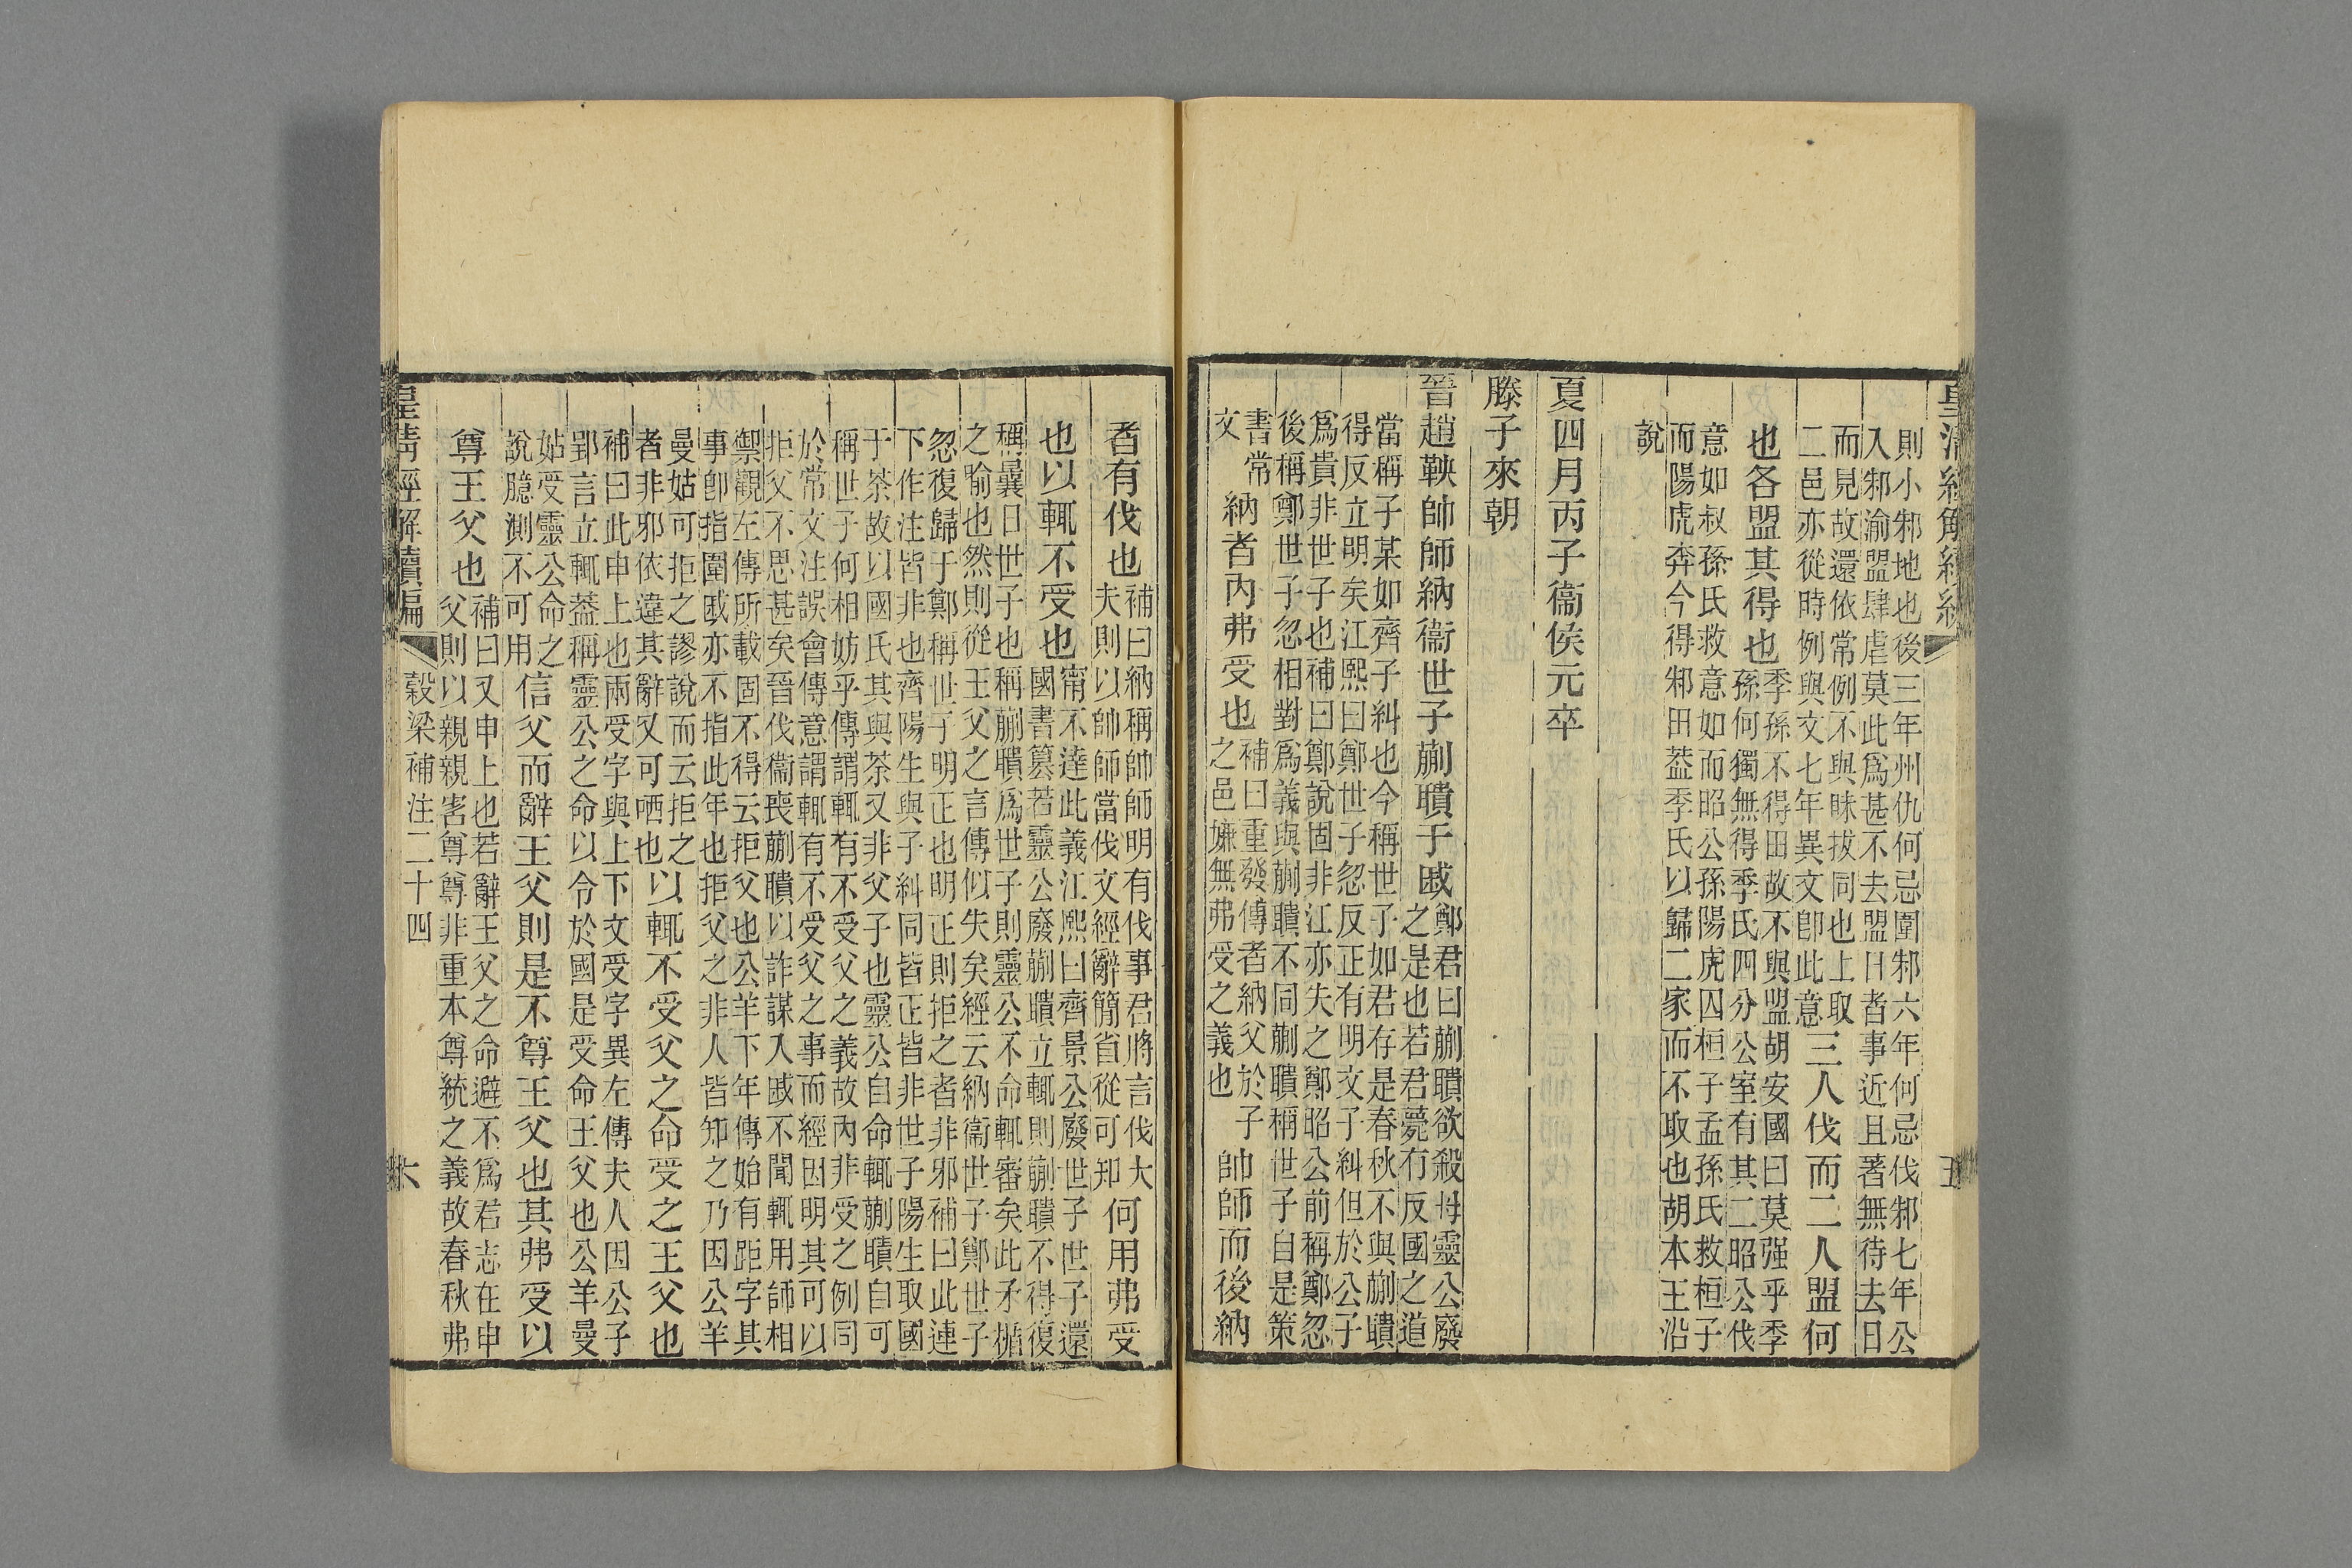 皇清經解續編
五
則小邾地也後三年州仇何忌圍邾六年何忌伐邾七年公
入邾渝盟肆虐莫此爲甚不去盟日者事近且著無待去日
而見故還依常例不與眛拔同也上取
二邑亦從時例與文七年異文卽此意
三人伐而二人盟何
也各盟其得也
季孫不得田故不與盟胡安國曰莫强乎季
孫何獨無得季氏四分公室有其二昭公伐
意如叔孫氏救意如而昭公孫陽虎囚桓子孟孫氏救桓子
而陽虎奔今得邾田葢季氏以歸二家而不取也胡本王沿
說
夏四月丙子衞侯元卒
滕子來朝
晉趙鞅帥師納衞世子蒯聵于戚
鄭君曰蒯聵欲殺母靈公廢
之是也若君薨有反國之道
當稱子某如齊子糾也今稱世子如君存是春秋不與蒯聵
得反立明矣江熙曰鄭世子忽反正有明文子糾但於公子
爲貴非世子也補曰鄭說固非江亦失之鄭昭公前稱鄭忽
後稱鄭世子忽相對爲義與蒯聵不同蒯聵稱世子自是策
書常
文
納者內弗受也
補曰重發傳者納父於子
之邑嫌無弗受之義也
帥師而後納
者有伐也
補曰納稱帥師明有伐事君將言伐大
夫則以帥師當伐文經辭簡省從可知
何用弗受
也以輒不受也
甯不達此義江熙曰齊景公廢世子世子還
國書篡若靈公廢蒯聵立輒則蒯聵不得復
稱曩日世子也稱蒯聵爲世子則靈公不命輒審矣此矛楯
之喻也然則從王父之言傳似失矣經云納衞世子鄭世子
忽復歸于鄭稱世子明正也明正則拒之者非邪補曰此連
下作注皆非也齊陽生與子糾同皆正皆非世子陽生取國
于荼故以國氏其與荼又非父子也靈公自命輒蒯聵自可
稱世子何相妨乎傳謂輒有不受父之義故內非受之例同
於常文注誤會傳意謂輒有不受父之事而經因明其可以
拒父不思甚矣晉伐衞喪蒯聵以詐謀入戚不聞輒用師相
禦觀左傳所載固不得云拒父也公羊下年傳始有距字其
事卽指圍戚亦不指此年也拒父之非人皆知之乃因公羊
曼姑可拒之謬說而云拒之
者非邪依違其辭又可哂也
以輒不受父之命受之王父也
補曰此申上也兩受字與上下文受字異左傳夫人因公子
郢言立輒葢稱靈公之命以令於國是受命王父也公羊曼
姑受靈公命之
說臆測不可用
信父而辭王父則是不尊王父也其弗受以
尊王父也
補曰又申上也若辭王父之命避不爲君志在申
父則以親親害尊尊非重本尊統之義故春秋弗
皇淸經解續編
穀梁補注二十四
六